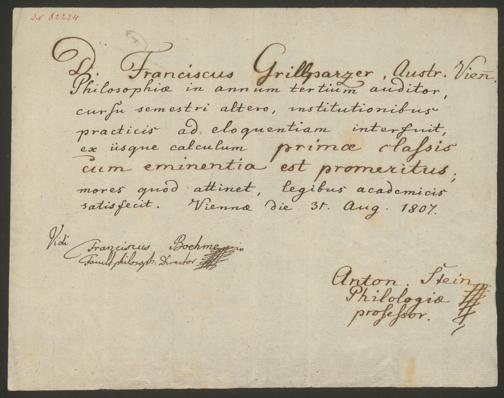 D. Franciscus Grillparzer, Austr. Vien.
Philosophiæ in annum tertium auditor,
cursu semestri altero, institutionibus
practicis ad eloquentiam interfuit,
ex iisque calculum primæ classis
cum eminentia est promeritus;
mores quod attinet, legibus academicis
satisfecit. Viennæ die 31. Aug. 1807.
Vidi
Franciscus Boehme
Director
Anton. Stein
Philologiæ
professor.